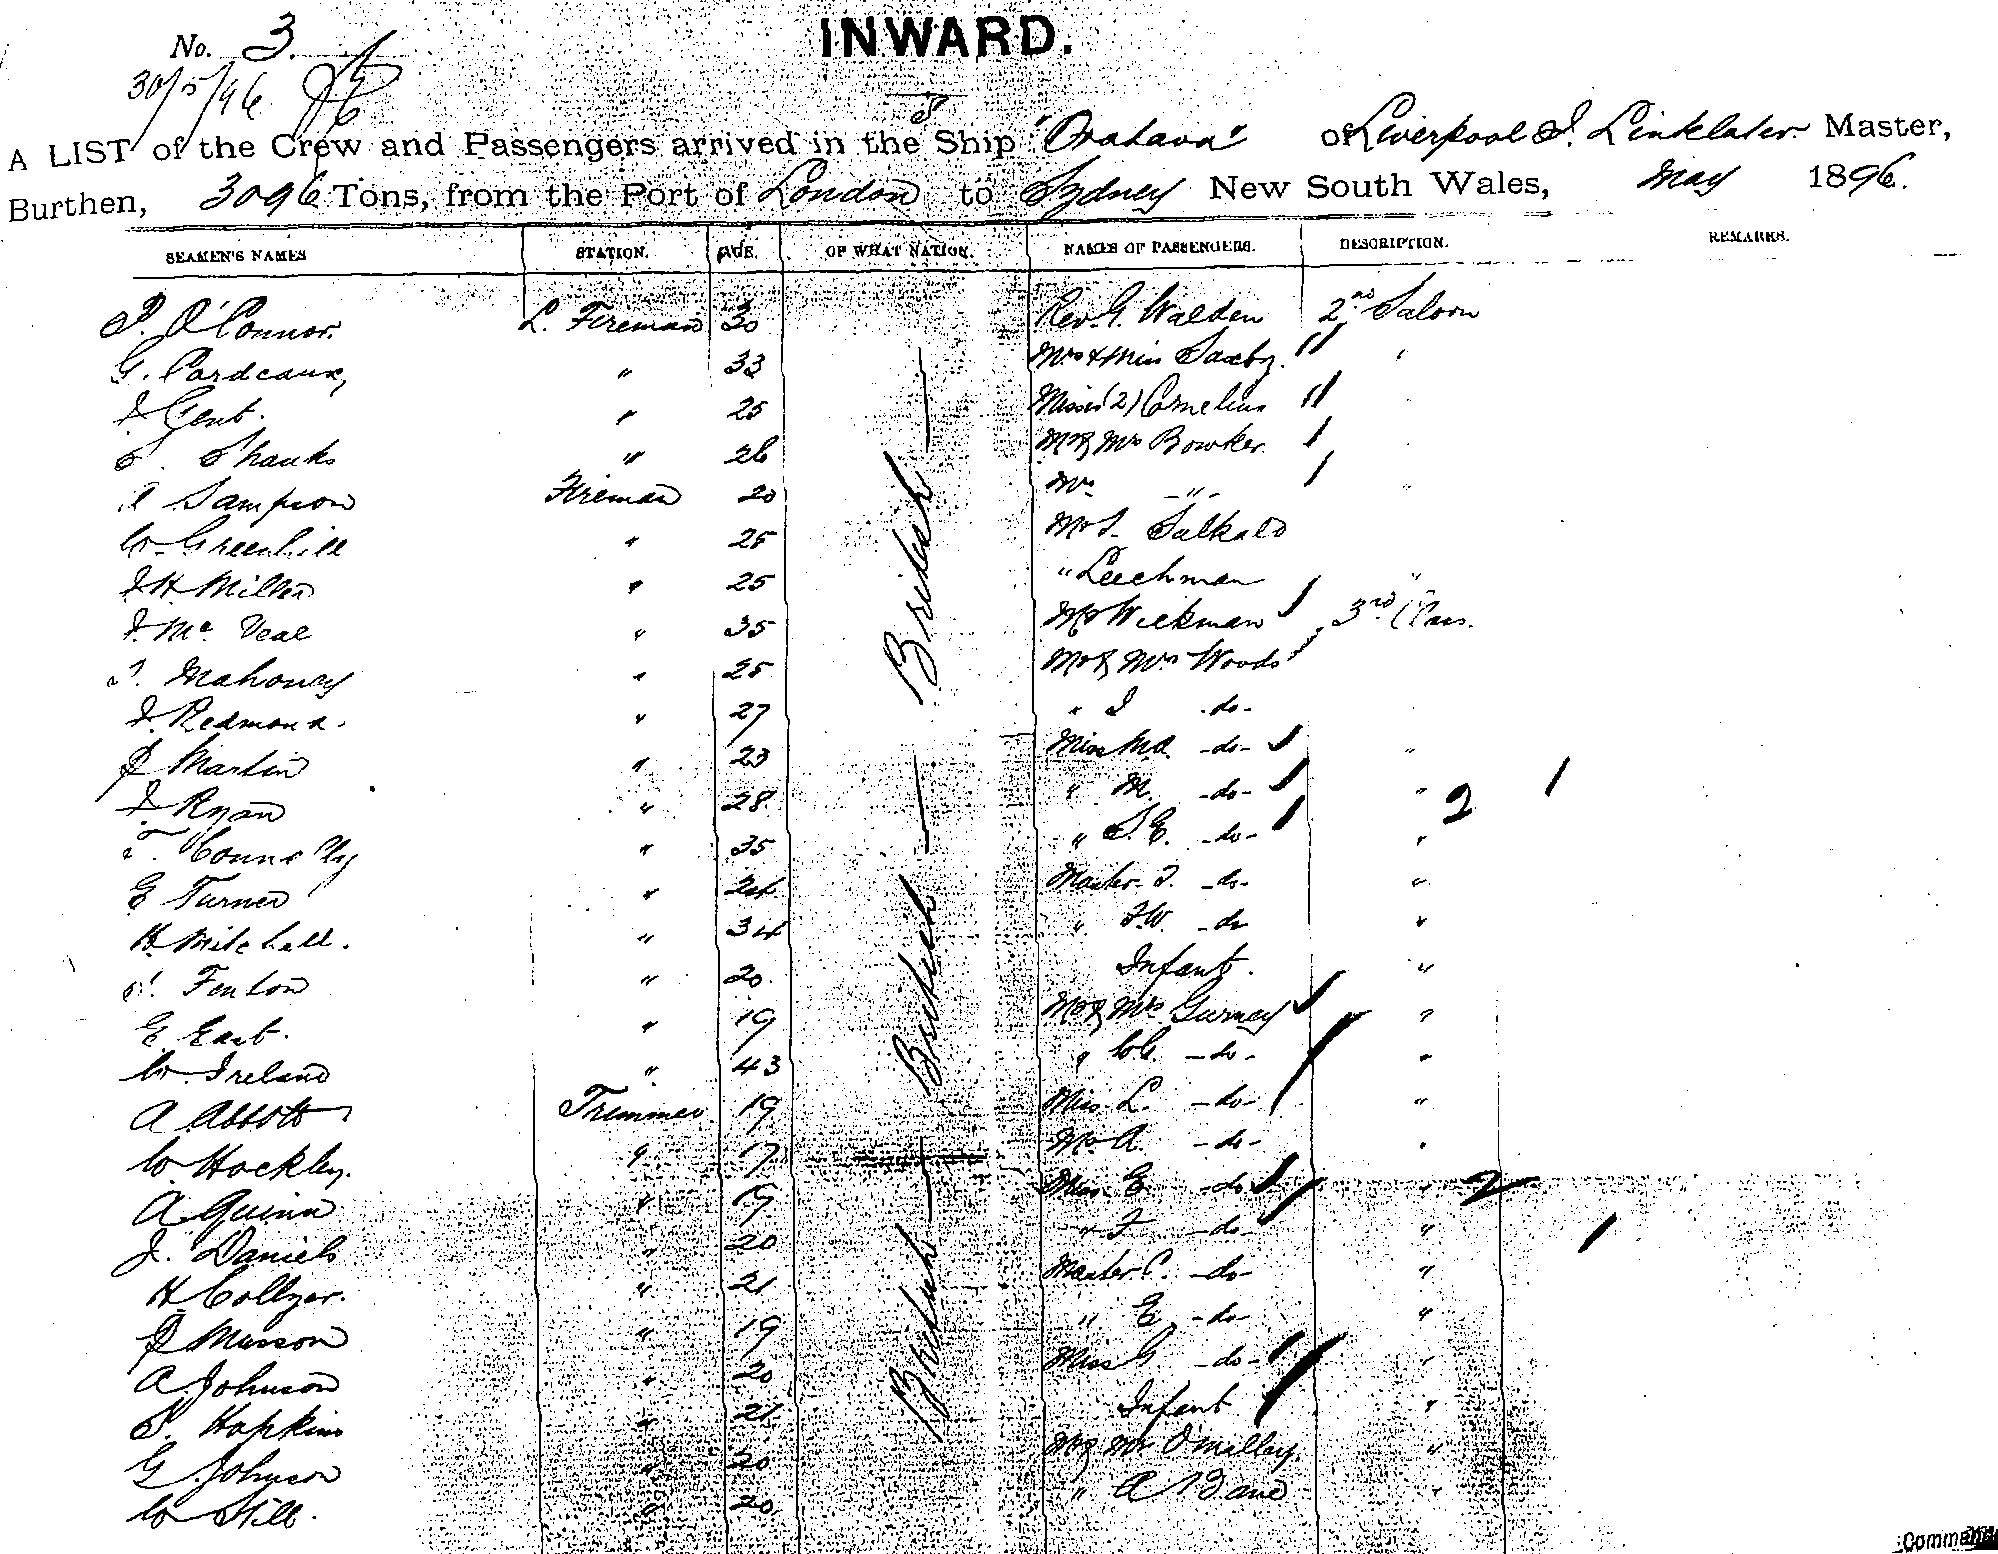 No. 3.
INWARD.
30/5/96
A LIST of the Crew and Passengers arrived in the Ship "Oratava" of Liverpool J. Linklater Master,
Burthen, 3096 Tons, from the Port of London to Sydney New South Wales, May 1896.
SEAMEN'S NAMES STATION. AGE. OF WHAT NATION. NAMES OF PASSENGERS. DESCRIPTION. REMARKS.
P. O'Connor. L. Fireman 30 Rev. G. Walden 2nd Saloon
G. Pardeaux, " 33 Mrs & Miss Saxby. "
J Gent. " 25 Misses (2) Cornelius
S. Shanks " 26 Mr & Mrs Bowker.
Sampson Fireman 20 Mr. -"-
W. Greenhill " 25 Mr S. Salkald
J H Miller " 25 " Leechman "
J. Mc Veal " 35 Mr Wickman 3rd Class.
T. Mahoney " 25 Mr & Mrs Woods
J. Redmond. " 27 " J -do-
J Martin " 23 Miss M.A. -do- "
J. Ryan " 28 " M. -do- " 2
T. Connolly " 35 " S. E. -do- "
E Turner " 24 Master J. -do- "
H Mitchell. " 34 " F.W. -do "
Fenton " 20 Infant. "
E. East. " 19 Mr & Mrs Gurney "
W. Ireland " 43 " -do- "
A Abbott Trimmer 19 Miss L. -do- "
W. Hockley. " 17 Mr. A. -do- "
A Quinn " 19 Miss E -do- " 2
J. Daniels " 20 " F -do- "
H Collyer. " 21 Master C. -do- "
J Musson " 19 " E -do- "
A Johnson " 20 Miss G. -do- "
S. Hopkins " 21 Infant "
G Johnson " 20 Mr & Mrs O'Malley. "
W Hill. " 20 " "
British — British — British
Comman